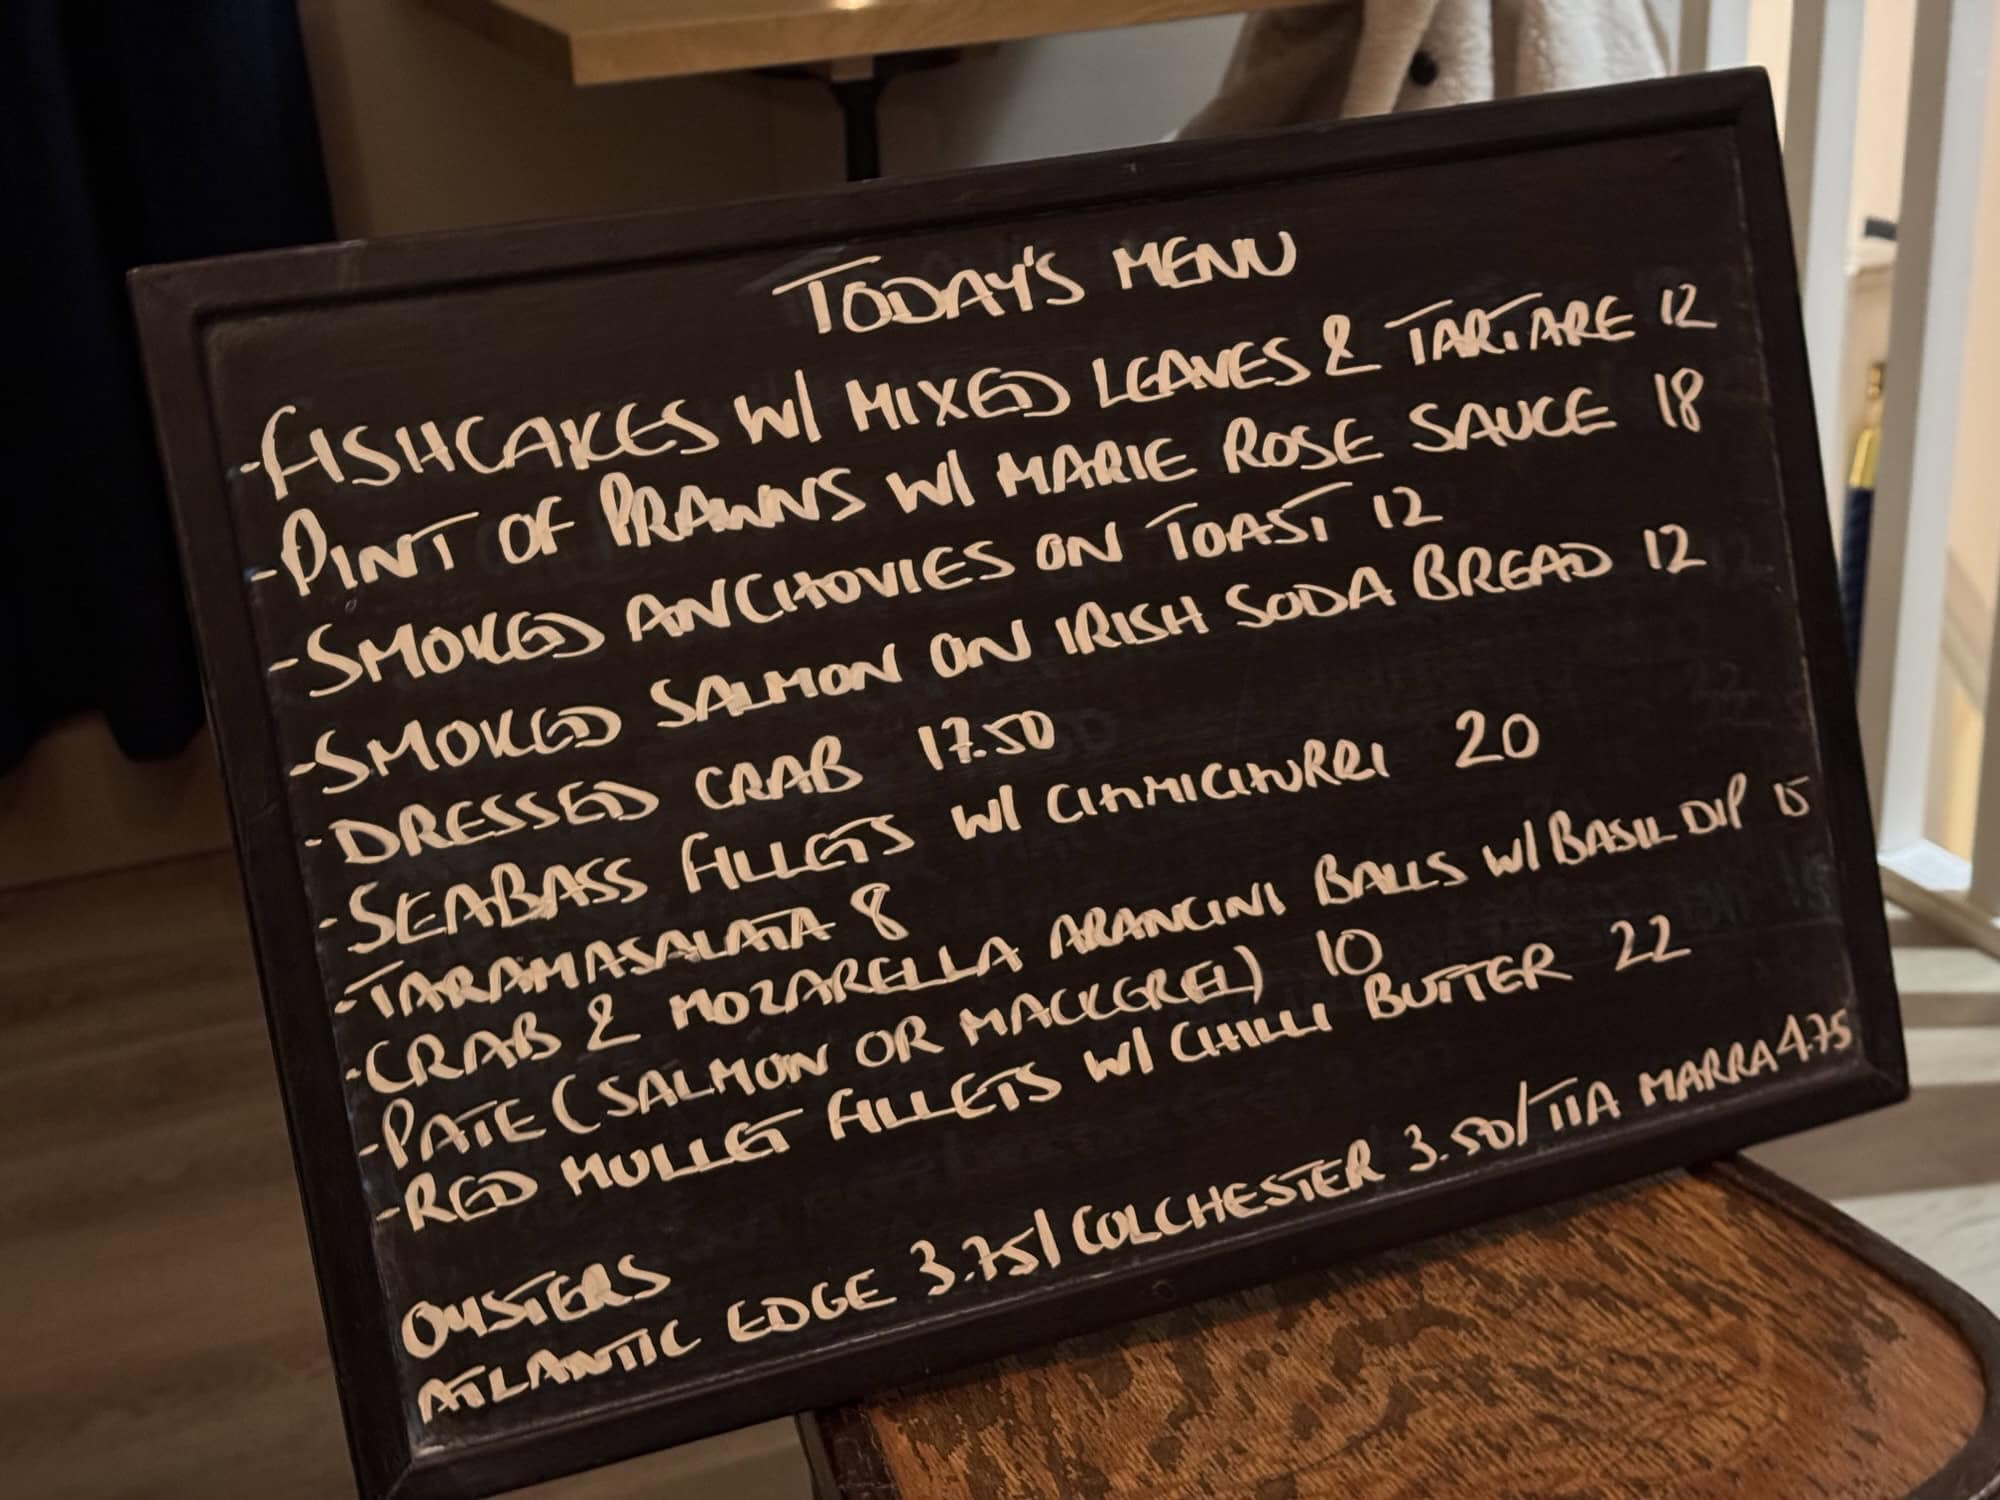 TODAY'S MENU
-FISHCAKES W/ MIXED LEAVES & TARTARE 12
-PINT OF PRAWNS W/ MARIE ROSE SAUCE 18
-SMOKED ANCHOVIES ON TOAST 12
-SMOKED SALMON ON IRISH SODA BREAD 12
-DRESSED CRAB 17.50
-SEABASS FILLETS W/ CHIMICHURRI 20
-TARAMASALATA 8
-CRAB & MOZARELLA ARANCINI BALLS W/ BASIL DIP 15
-PATE (SALMON OR MACKEREL) 10
-RED MULLET FILLETS W/ CHILLI BUTTER 22
OYSTERS
ATLANTIC EDGE 3.75/ COLCHESTER 3.50/TIA MARRA 4.75